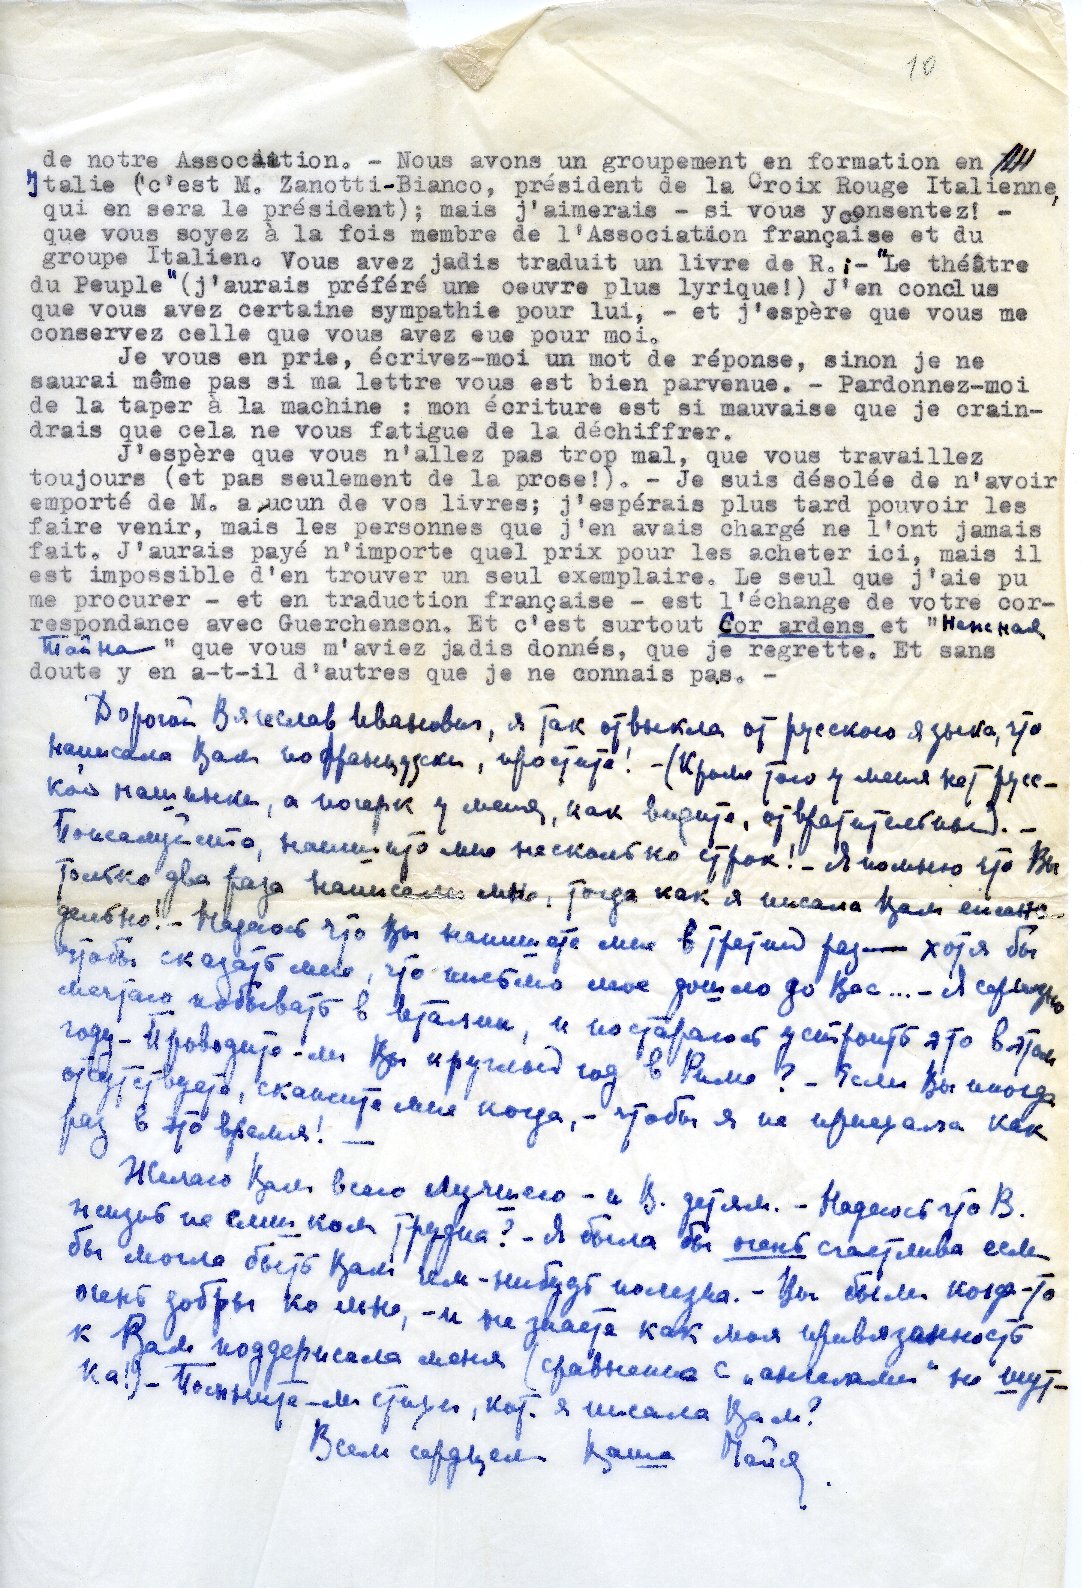 10
de notre Association. - Nous avons un groupement en formation en
Italie (c'est M. Zanotti-Bianco, président de la Croix Rouge Italienne,
qui en sera le président); mais j'aimerais - si vous y consentez! -
que vous soyez à la fois membre de l'Association française et du
groupe Italien. Vous avez jadis traduit un livre de R. ;- "Le théâtre
du Peuple" (j'aurais préféré une oeuvre plus lyrique!) J'en conclus
que vous avez certaine sympathie pour lui, - et j'espère que vous me
conservez celle que vous avez eue pour moi.
Je vous en prie, écrivez-moi un mot de réponse, sinon je ne
saurai même pas si ma lettre vous est bien parvenue. - Pardonnez-moi
de la taper à la machine : mon écriture est si mauvaise que je crain-
drais que cela ne vous fatigue de la déchiffrer.
J'espère que vous n'allez pas trop mal, que vous travaillez
toujours (et pas seulement de la prose!). - Je suis désolée de n'avoir
emporté de M. aucun de vos livres; j'espérais plus tard pouvoir les
faire venir, mais les personnes que j'en avais chargé ne l'ont jamais
fait. J'aurais payé n'importe quel prix pour les acheter ici, mais il
est impossible d'en trouver un seul exemplaire. Le seul que j'aie pu
me procurer - et en traduction française - est l'échange de votre cor-
respondance avec Guerchenson. Et c'est surtout Cor ardens et "Нежная
Тайна" que vous m'aviez jadis donnés, que je regrette. Et sans
doute y en a-t-il d'autres que je ne connais pas. -
Дорогой Вячеслав Иванович, я так отвыкла от русского языка, что
написала Вам по французски, простите! - (Кроме того у меня нет русс-
кой машинки, а почерк у меня, как видите, отвратительный). -
Пожалуйста, напишите мне несколько строк! - Я помню что Вы
только два раза написали мне, тогда как я писала Вам ежене-
дельно! - Надеюсь что Вы напишете мне в третий раз — хотя бы
чтобы сказать мне, что письмо мое дошло до Вас... - Я серьезно
мечтаю побывать в Италии, и постараюсь устроить это в этом
году - Проводите-ли Вы круглый год в Риме? - Если Вы иногда
отсутствуете, скажите мне когда, - чтобы я не приехала как
раз в это время! —
Желаю Вам всего лучшего - и В. детям. - Надеюсь что В.
жизнь не слишком трудна? - Я была бы очень счастлива если
бы могла быть Вам чем-нибудь полезна. - Вы были когда-то
очень добры ко мне, - и не знаете как моя привязанность
к Вам поддержала меня (сравнение с „ангелами“ не шут-
ка!) - Помните-ли стихи, кот. я писала Вам?
Всем сердцем Ваша Майя.